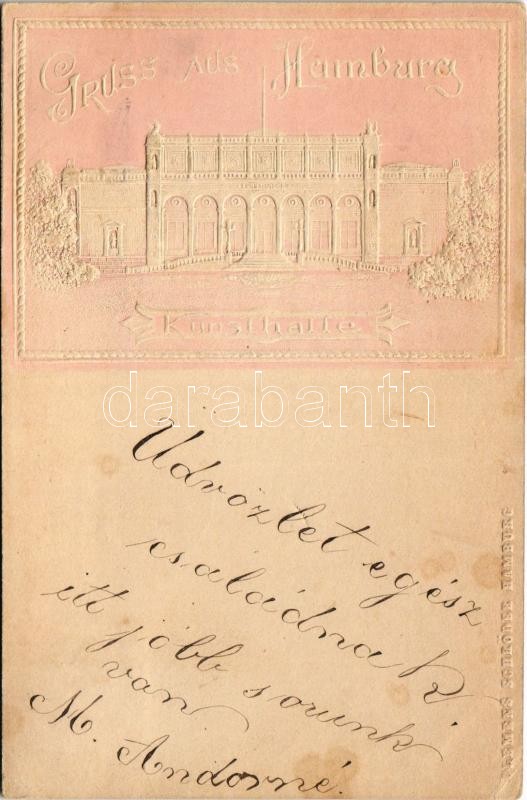 Gruss aus Hamburg
Kunsthalle
darabanth
Üdvözlet egész
családnak,
itt jobb sorunk
van
M. Andorné.
SCHRÖDER HAMBURG